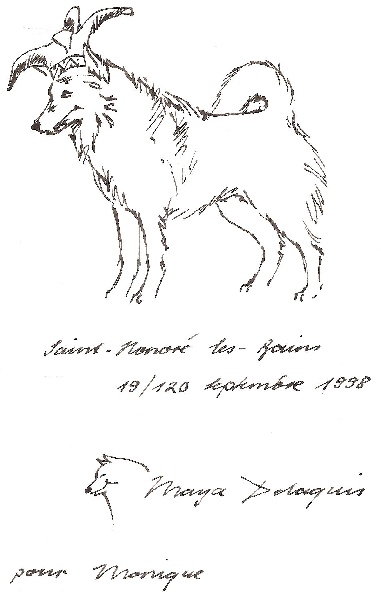 Saint-Honoré les-Bains
19/120 septembre 1998
Maya Delaquis
pour Monique